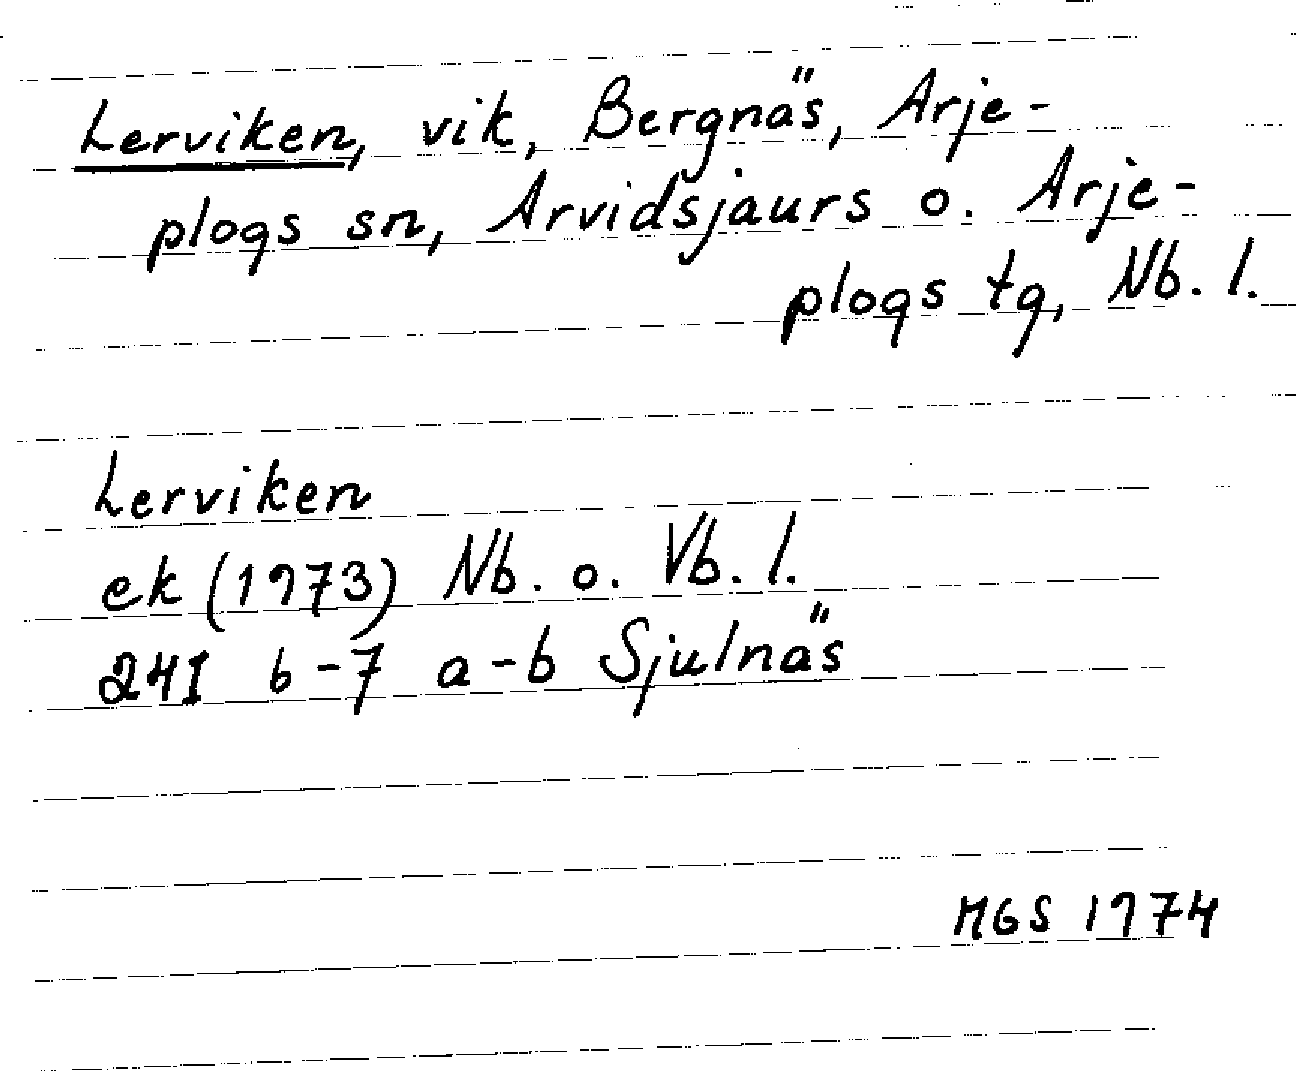 Lerviken, vik, Bergnäs, Arje-
plogs sn, Arvidsjaurs o. Arje-
plogs tg, Nb. l.
Lerviken
ek (1973) Nb. o. Vb. l.
24I 6-7 a-b Sjulnäs
MGS 1974